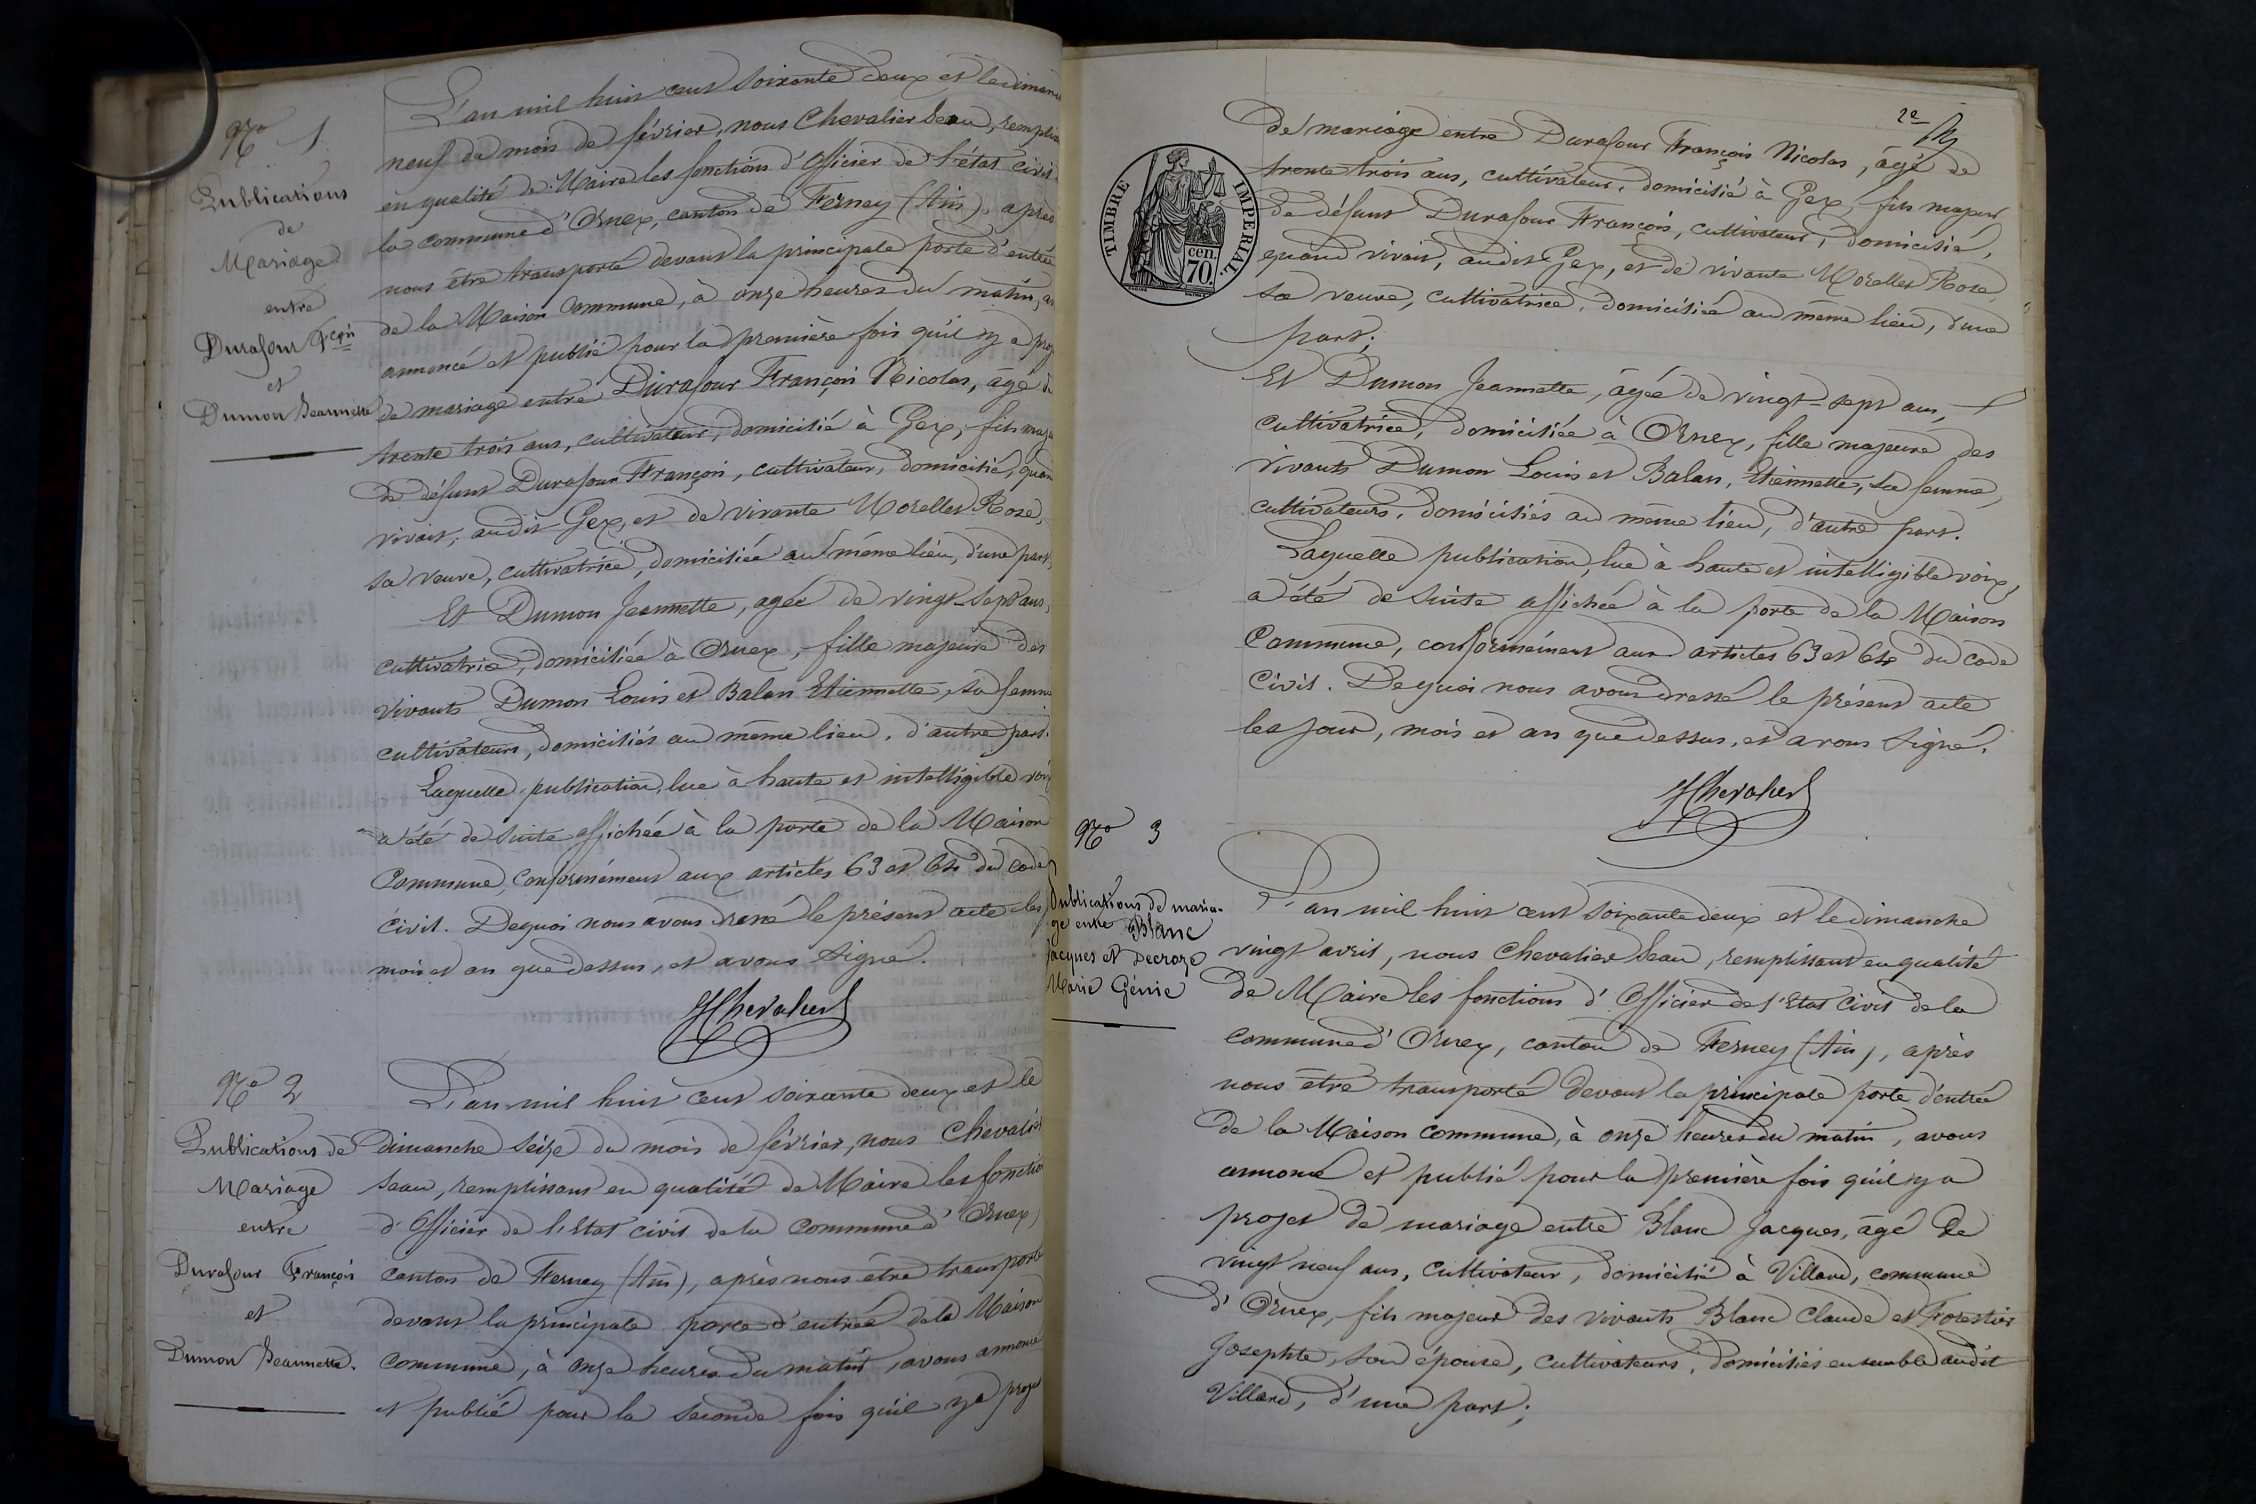 No 1.
Publications
de
Mariage
entre
Durafour Fçois
et
Dumon Jeannette
L'an mil huit cent soixante deux et le diman
neuf du mois de février, nous Chevalier Jean, remplis
en qualité de Maire les fonctions d'Officier de l'état civil
la commune d'Ornex, canton de Ferney (Ain), après
nous être transporté devant la principale porte d'entrée
de la Maison Commune, à onze heures du matin, av
annoncé et publié pour la première fois qu'il y a proj
de mariage entre Durafour François Nicolas, âgé de
trente trois ans, cultivateur, domicilié à Gex, fils maje
de défunt Durafour François, cultivateur, domicilié, quan
vivait, audit Gex, et de vivante Morellet Rose,
sa veuve, cultivatrice, domiciliée au même lieu, d'une part,
Et Dumon Jeannette, agée de vingt-sept ans,
cultivatrice, domiciliée à Ornex, fille majeure des
vivants Dumon Louis et Balan Etiennette, sa femme
cultivateurs, domiciliés au même lieu, d'autre part.
Laquelle publication, lue à haute et intelligible voix
a été de suite affichée à la porte de la Maison
Commune, conformément aux articles 63 et 64 du code
civil. Dequoi nous avons dressé le présent acte les j
mois et an que dessus, et avons signé.
JChevalier
No 2
Publications de
Mariage
entre
Durafour François
et
Dumon Jeannette.
L'an mil huit cent soixante deux et le
dimanche seize du mois de février, nous Chevalier
Jean, remplissant en qualité de Maire les fonctio
d'Officier de l'Etat civil de la commune d'Ornex,
canton de Ferney (Ain), après nous être transporté
devant la principale porte d'entrée de la Maison
Commune, à onze heures du matin, avons annoncé
et publié pour la seconde fois qu'il y a projet
2e
de mariage entre Durafour François Nicolas, âgé de
trente trois ans, cultivateur, domicilié à Gex, fils majeur
de défunt Durafour François, cultivateur, domicilié,
quand vivait, audit Gex, et de vivante Morellet Rose,
sa veuve, cultivatrice, domiciliée au même lieu, d'une
part;
TIMBRE IMPERIAL.
70.
cen.
Et Dumon Jeannette, âgée de vingt-sept ans,
cultivatrice, domiciliée à Ornex, fille majeure des
vivants Dumon Louis et Balan, Etiennette, sa femme,
cultivateurs, domiciliés au même lieu, d'autre part.
Laquelle publication, lue à haute et intelligible voix,
a été de suite affichée à la porte de la Maison
Commune, conformément aux articles 63 et 64 du code
Civil. Dequoi nous avons dressé le présent acte
les jour, mois et an que dessus, et avons signé.
JChevalier
No 3
Publications de maria-
ge entre Blanc
Jacques et Decroze
Marie Génie
L'an mil huit cent soixante deux et le dimanche
vingt avril, nous Chevalier Jean, remplissant en qualité
de Maire les fonctions d'Officier de l'Etat Civil de la
commune d'Ornex, canton de Ferney (Ain), après
nous être transporté devant la principale porte d'entrée
de la Maison commune, à onze heures du matin, avons
annoncé et publié pour la première fois qu'il y a
projet de mariage entre Blanc Jacques, âgé de
vingt neuf ans, cultivateur, domicilié à Villard, commune
d'Ornex, fils majeur des vivants Blanc Claude et Forestier
Josephte, son épouse, cultivateurs, domiciliés ensemble audit
Villard, d'une part;